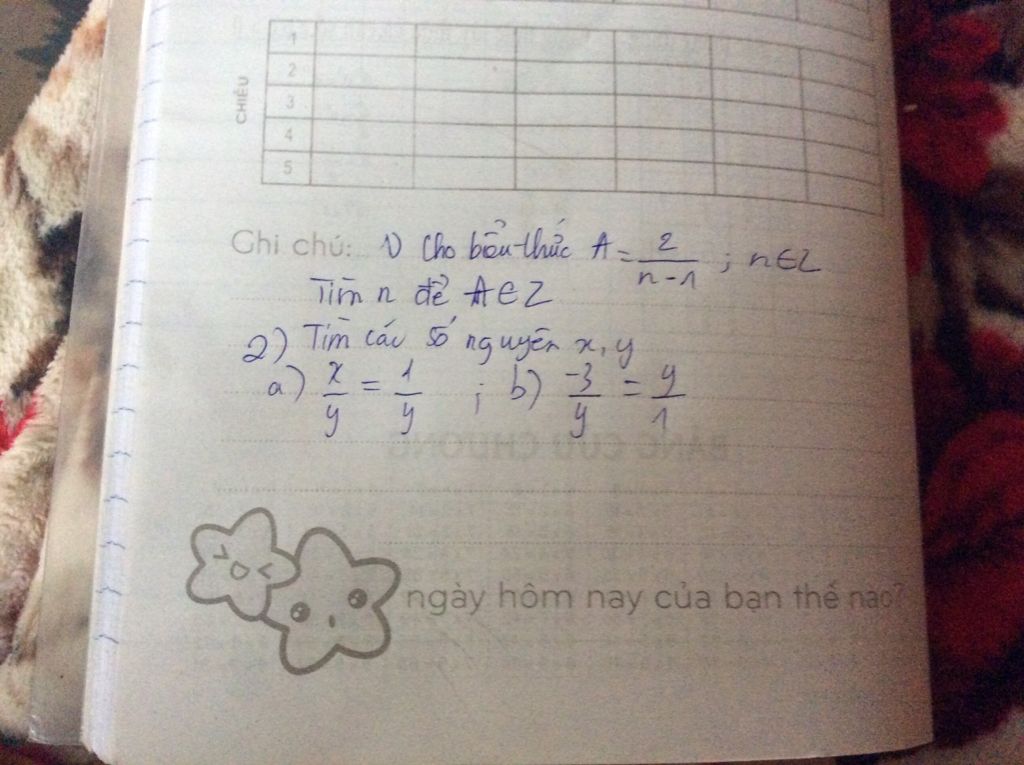 CHIỀU
1
2
3
4
5
Ghi chú: 1) Cho biểu thức A = 2/(n-1) ; n∈Z
Tìm n để A∈Z
2) Tìm các số nguyên x, y
a) x/y = 1/y ; b) -3/y = y/1
BẢNG CỬU CHƯƠNG
ngày hôm nay của bạn thế nào?